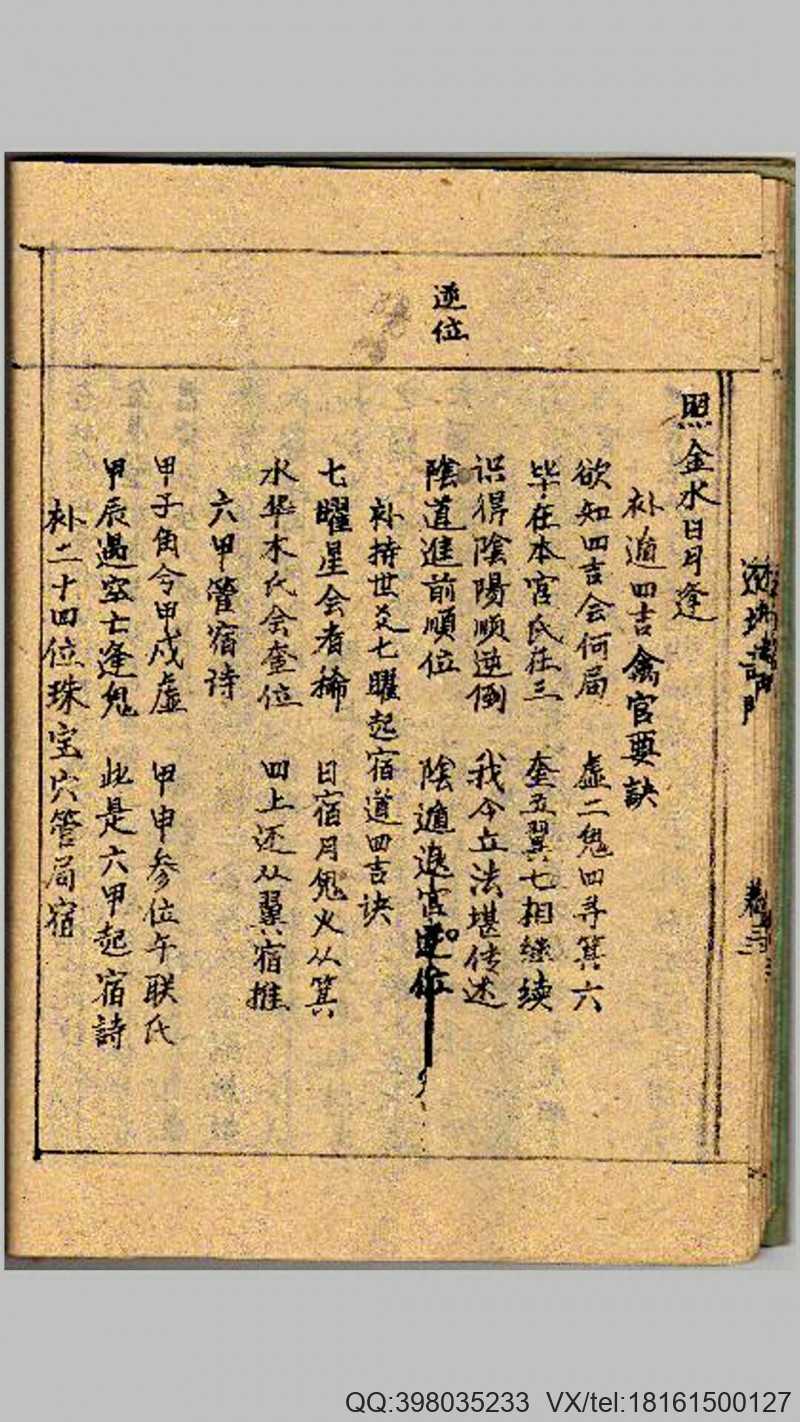 逆位
照金水日月逢
补遁四吉禽官要訣
欲知四吉会何局 虚二鬼四寻箕六
毕在本宫氐在三 奎五翼七相继续
识得陰陽顺逆倒 我今立法堪传述
陰道進前順位 陰遁退官逆位
补持世爻七曜起宿道四吉诀
七曜星会者稀 日宿月鬼火从箕
水毕木氐会奎位 四上还从翼宿推
六甲管宿诗
甲子角兮甲戍虚 甲申参位午联氐
甲辰遇空亡逢鬼 此是六甲起宿詩
补二十四位珠宝穴管局宿
卷
QQ:398035233 VX/tel:18161500127